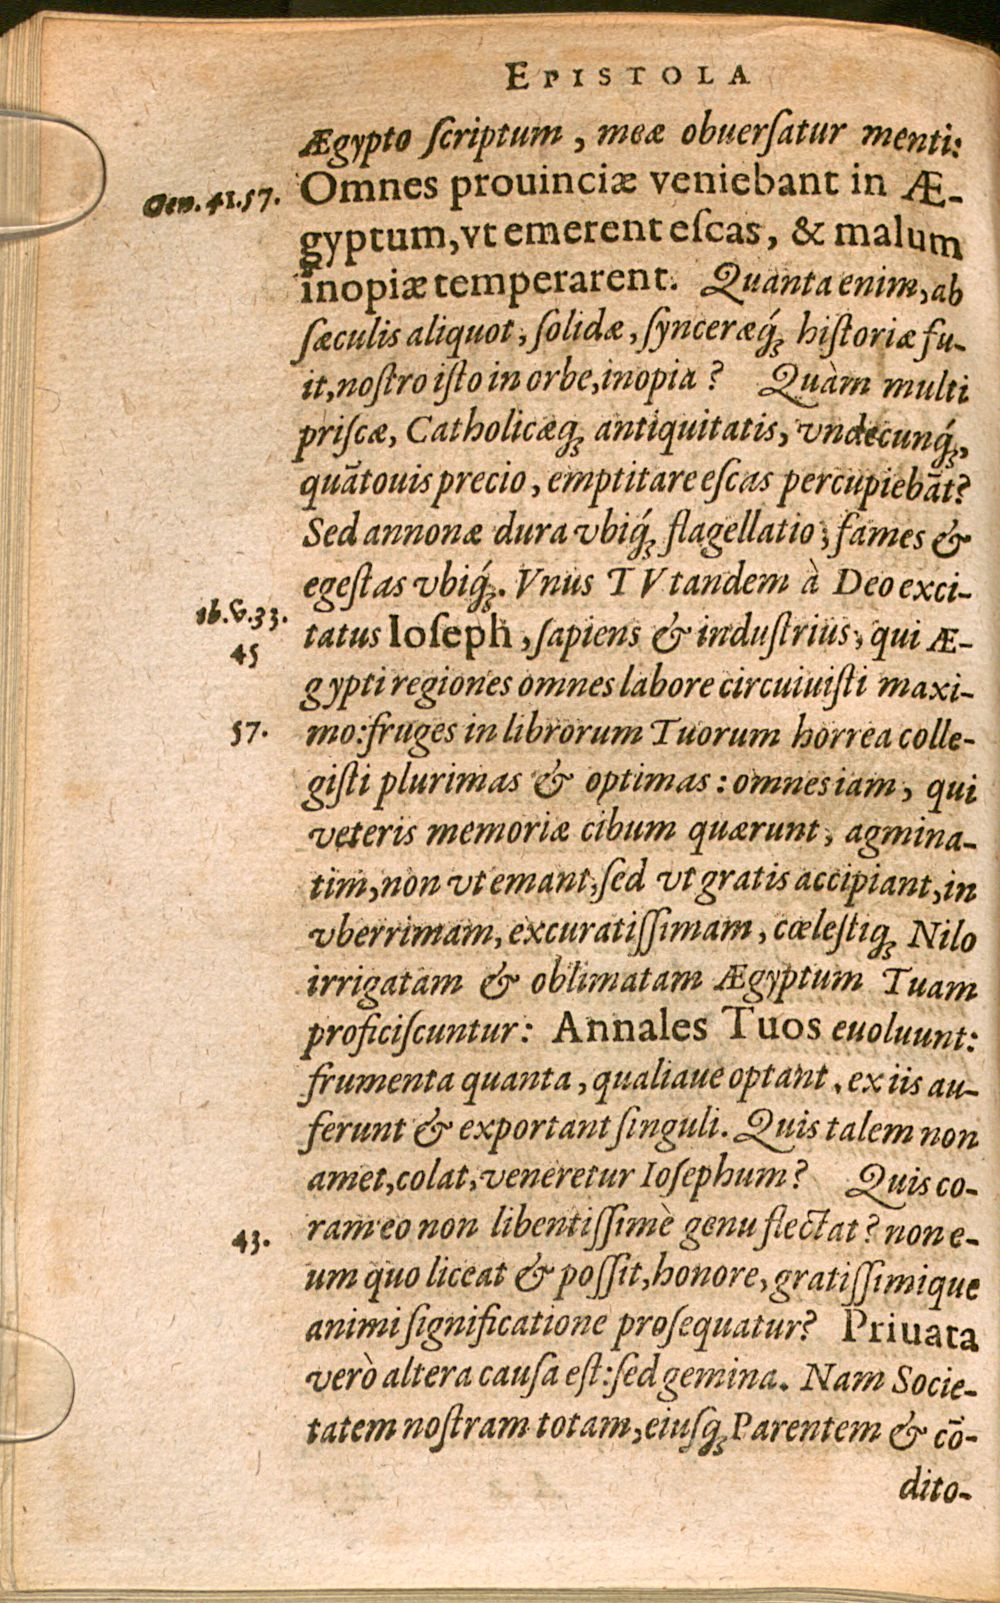 EPISTOLA
Ægypto ſcriptum, meæ obuerſatur menti:
Gen. 41.57.
Omnes prouinciæ veniebant in Æ-
gyptum, vt emerent eſcas, & malum
inopiæ temperarent. Quanta enim, ab
ſæculis aliquot, ſolidæ, ſynceræq́ꝫ hiſtoriæ fu-
it, noſtro iſto in orbe, inopia? Quàm multi
priſcæ, Catholicæqꝫ antiquitatis, vndecunq́ꝫ,
quātouis precio, emptitare eſcas percupiebāt?
Sed annonæ dura vbiq́ꝫ flagellatio, fames &
egeſtas vbiq́ꝫ. Vnus TV tandem à Deo exci-
ib. v. 33.
tatus Ioſeph, ſapiens & induſtrius, qui Æ-
45
gypti regiones omnes labore circuiuiſti maxi-
57.
mo: fruges in librorum Tuorum horrea colle-
giſti plurimas & optimas: omnes iam, qui
veteris memoriæ cibum quærunt, agmina-
tim, non vt emant, ſed vt gratis accipiant, in
vberrimam, excuratiſſimam, cœleſtiqꝫ Nilo
irrigatam & oblimatam Ægyptum Tuam
proficiſcuntur: Annales Tuos euoluunt:
frumenta quanta, qualiaue optant, ex iis au-
ferunt & exportant ſinguli. Quis talem non
amet, colat, veneretur Ioſephum? Quis co-
43.
ram eo non libentiſſimè genu flectat? non e-
um quo liceat & poſſit, honore, gratiſſimique
animi ſignificatione proſequatur? Priuata
verò altera cauſa eſt: ſed gemina. Nam Socie-
tatem noſtram totam, eiuſqꝫ Parentem & cō-
dito-